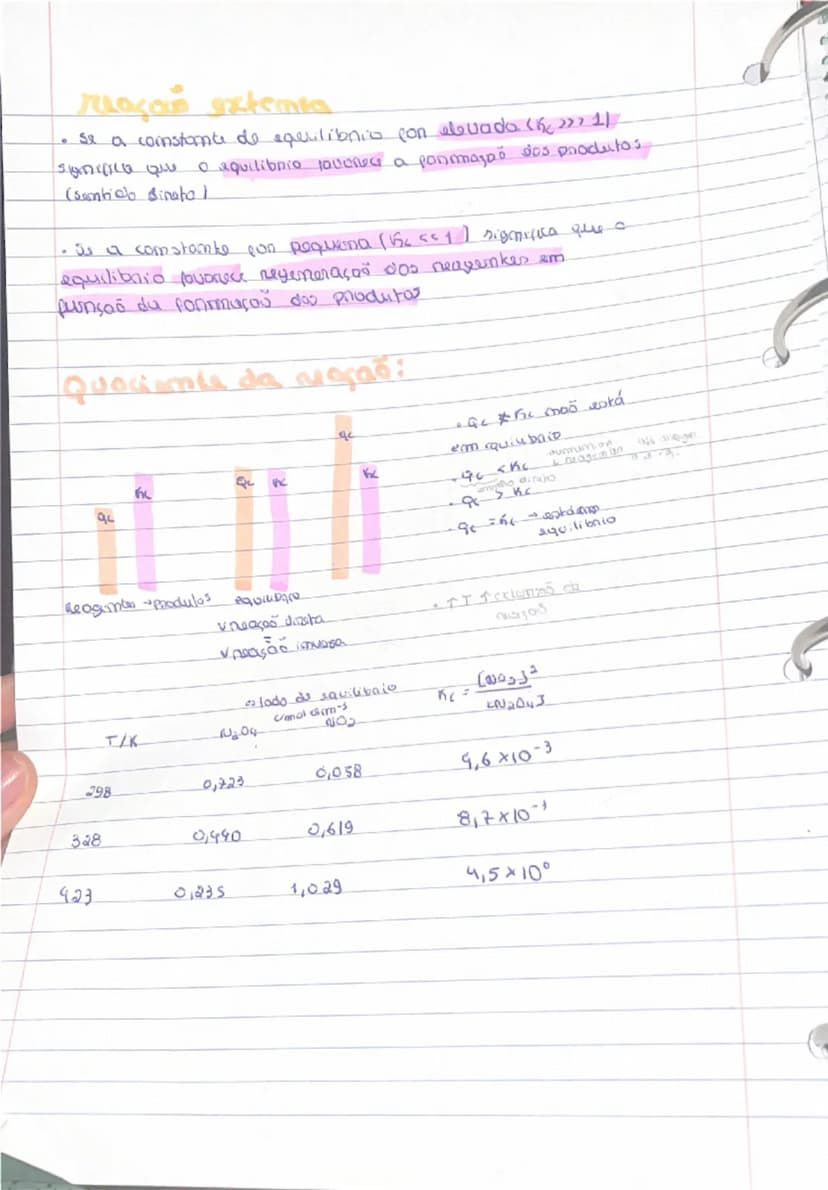 reação extensa
• Se a constante de equilíbrio for elevada (Kc >>> 1)
significa que o equilíbrio favorece a formação dos produtos
(sentido direto)
• Se a constante for pequena (Kc << 1) significa que o
equilíbrio favorece regeneração dos reagentes em
função da formação dos produtos
Quociente da reação:
qc
Kc
Qc
Kc
qc
Kc
Reagentes → produtos
equilíbrio
v reação direta
v reação inversa
• Qc ≠ Kc não está
em equilíbrio
• qc < Kc
sentido direto
• qc > Kc
• qc = Kc → está em
equilíbrio
• ↑T ↑ extensão da
reação
estado de equilíbrio
c/mol dm-3
T/K
N2O4
NO2
Kc = [NO2]²
[N2O4]
298 0,723 0,058 4,6 x10-3
328 0,490 0,619 8,7 x10-1
423 0,235 1,029 4,5 x 10⁰